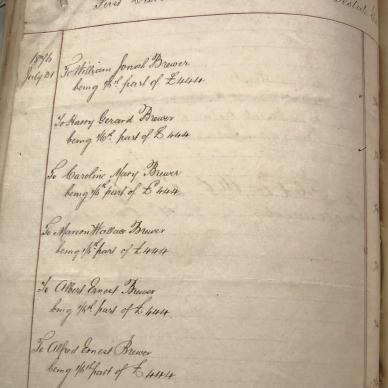 1896
July 31
To William Jonah Brewer
being 1/6th part of £444
To Harry Gerard Brewer
being 1/6th part of £444
To Caroline Mary Brewer
being 1/6th part of £444
To Marcon Wallace Brewer
being 1/6th part of £444
To Albert Ernest Brewer
being 1/6th part of £444
To Alfred Ernest Brewer
being 1/6th part of £444